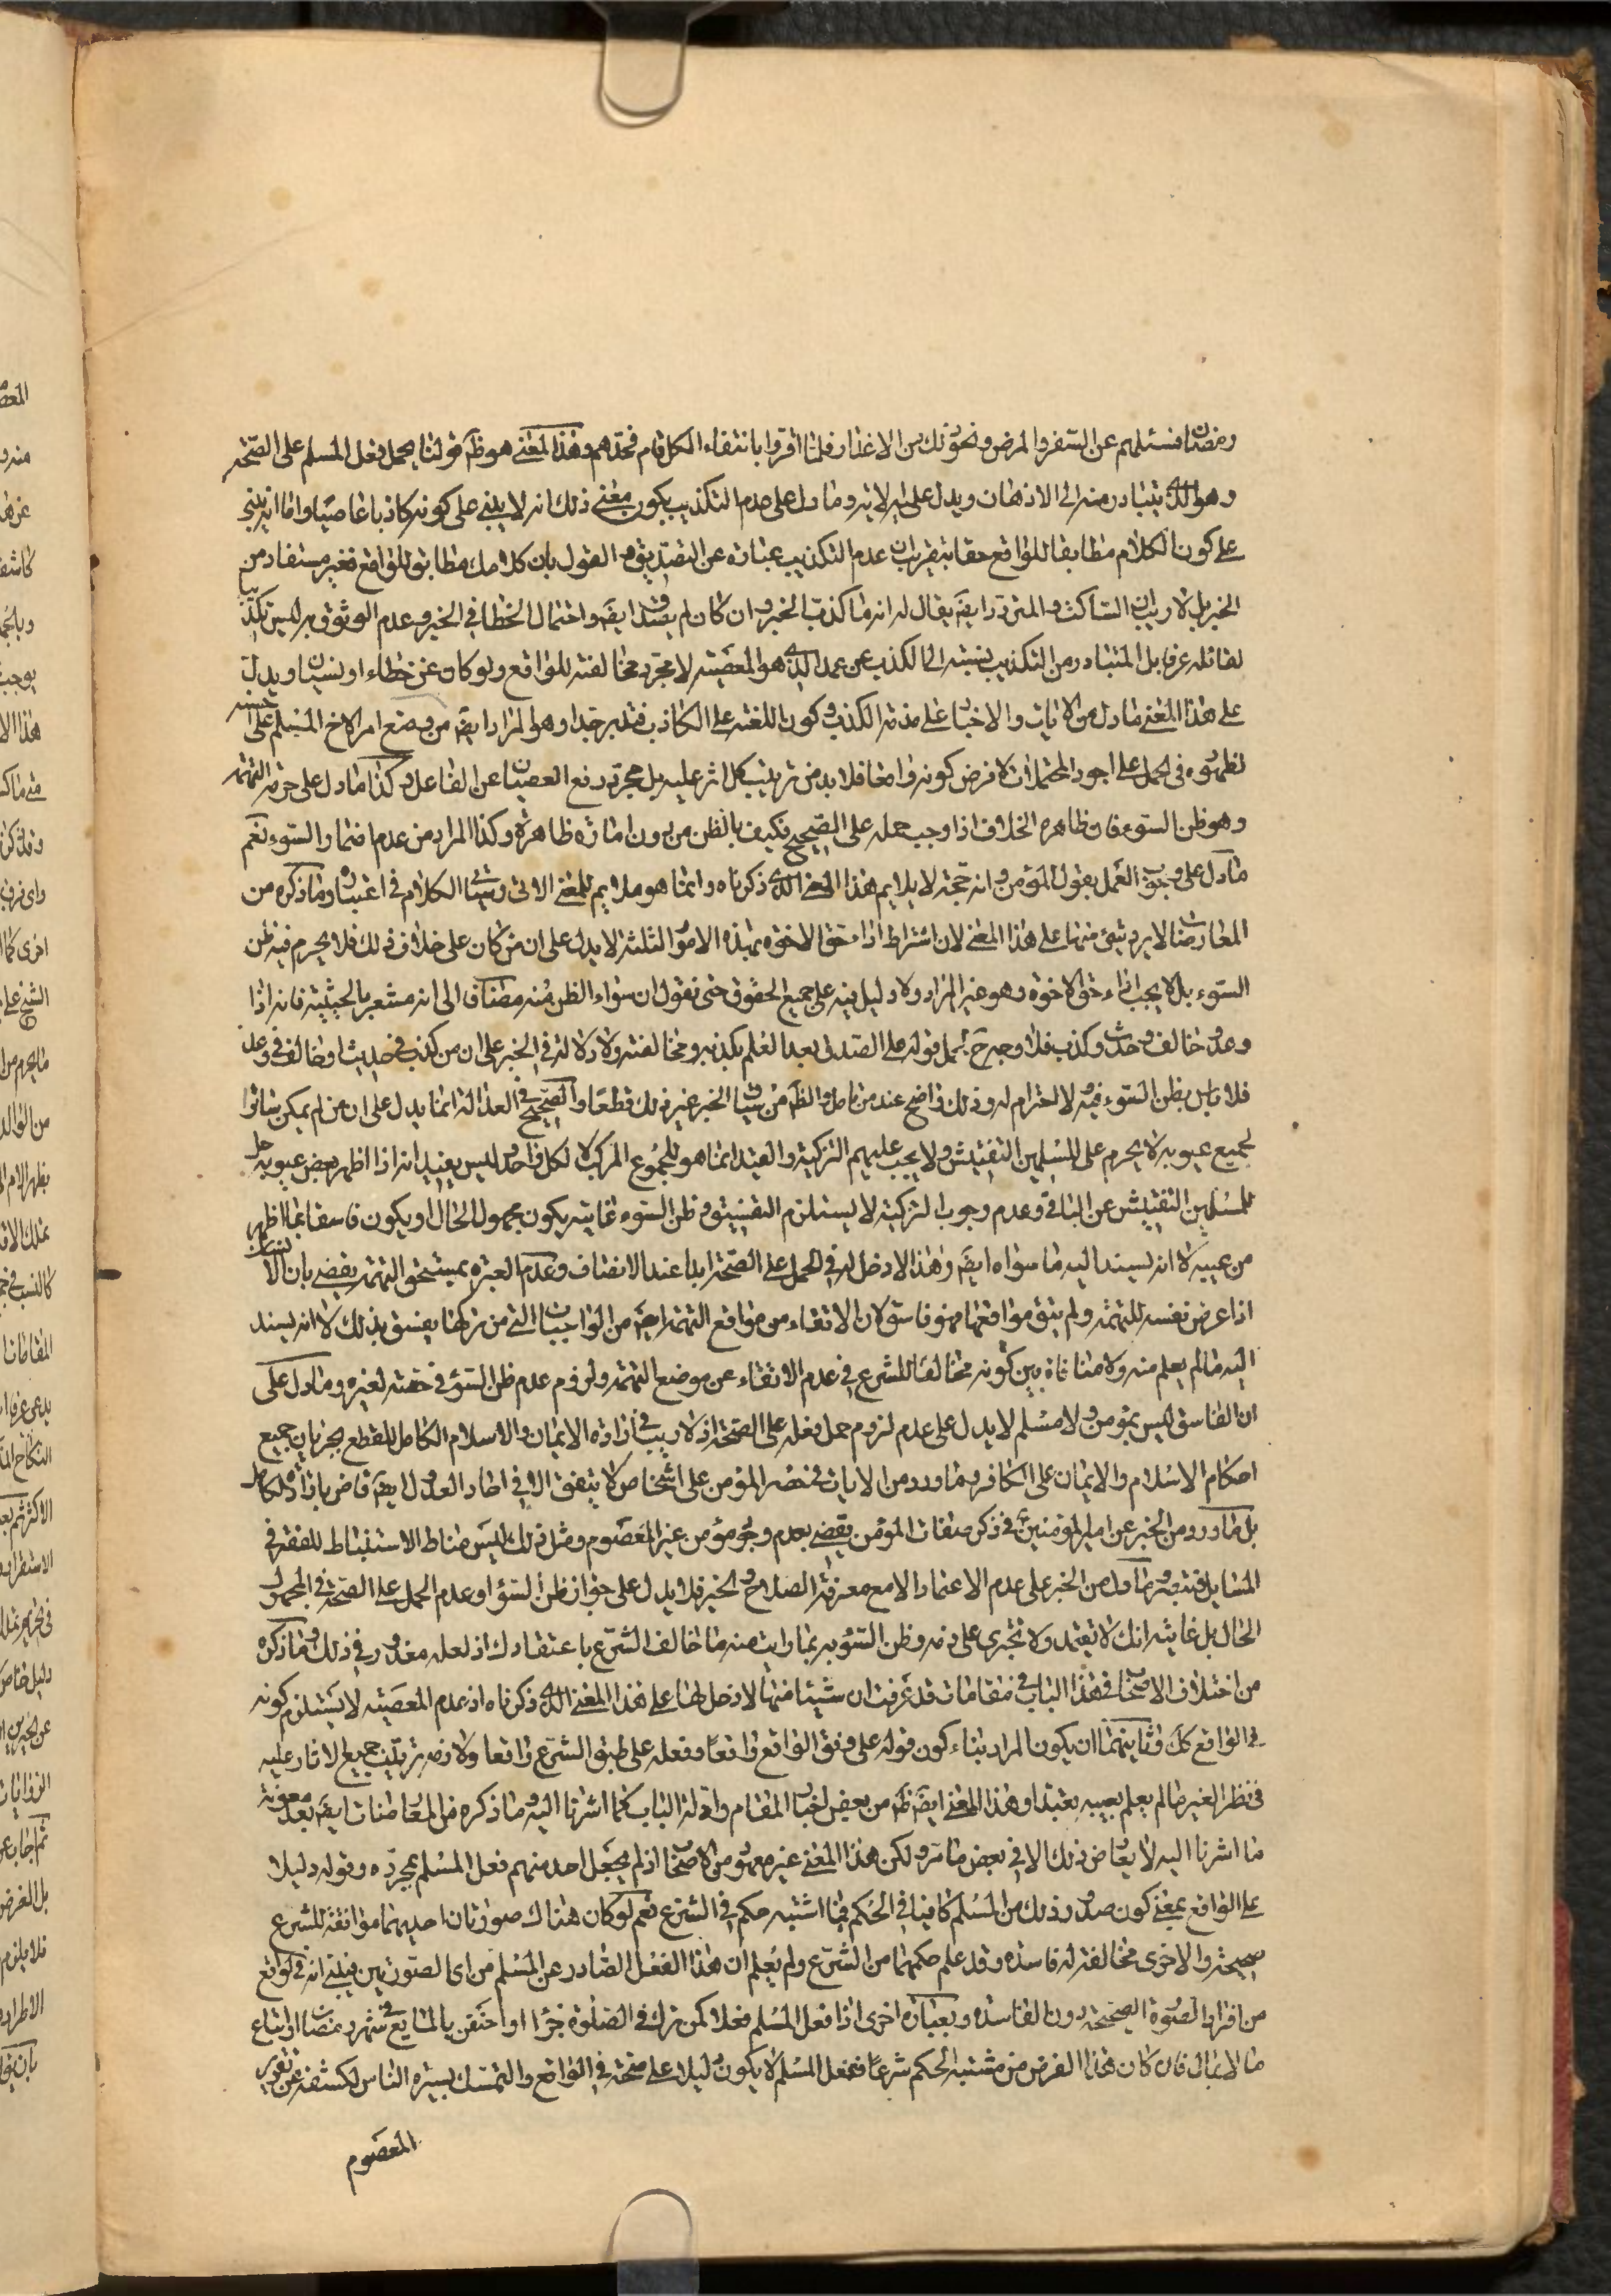 رمضان فنسئلهم عن السفر والمرض ونحو ذلك من الاعذار فلما اقروا بانتفاء الكل قام فحدهم وهذا المعنى هو ظ قولنا يحمل فعل المسلم على الصحة
وهو الذى يتبادر منه الى الاذهان ويدل عليه الاية وما دل على عدم التكذيب يكون معنى ذلك انه لا يبنى على كونه كاذبا عاصيا واما انه يبنى
على كون الكلام مطابقا للواقع حقا بتقريب ان عدم التكذيب عبارة عن التصديق و القول بان كلامك مطابق للواقع فغير مستفاد من
الخبر بل لا ريب ان الساكت والمتردد ايضَ يقال له انه ما كذب الخبر وان كان لم يصدق ايضَ واحتمال الخطا فى الخبر وعدم الوثوق به ليس تكذيبا
لقائله عرفا بل المتبادر من التكذيب نسبته الى الكذب عن عمد الذى هو المعصية لا مجرد مخالفته للواقع ولو كان عن خطاء او نسيان ويدل
على هذا المعنى ما دل من الايات والاخبار على مذمة الكذب وكون اللعنة على الكاذب فتدبر جدا وهو المراد ايضَ من وضع امر الاخ المسلم على احسنه
لظهوره فى الحمل على اجود المحتملات لا فرض كونه واقعا فلا بد من ترتيب كل اثر عليه بل مجرد رفع العصيان عن الفاعل وكذا ما دل على حرمة التهمة
وهو ظن السوء فان ظاهره الخلاف اذا وجب حمله على الصحيح فكيف بالظن من دون امارة ظاهرة وكذا المراد من عدم اضمار السوء نعم
ما دل على وجوب العمل بقول المؤمن وانه حجة لا يلايم هذا المعنى الذى ذكرناه وانما هو ملايم للمعنى الاتى وسياتى الكلام فى اعتباره وما ذكره من
المعارضات لا يرد شىء منها على هذا المعنى لان اشتراط اداء حق الاخوة بهذه الامور الثلثة لا يدل على ان من كان على خلاف ذلك فلا يحرم فيه ظن
السوء بل لا يجب اداء حق الاخوة وهو غير المراد ولا دليل فيه على جميع الحقوق حتى نقول ان سواء الظن منه مضافا الى انه مشعر بالحيثية فانه اذا
وعد وخالف وحدث وكذب فلا وجه ح لحمل قوله على الصدق بعد العلم بكذبه ومخالفته ولا دلالة فى الخبر على ان من كذب فى حديث او خالف فى وعد
فلا باس بظن السوء فيه ولا احترام له وذلك واضح عند من تامل والظَ من سياق الخبر غير ذلك قطعا والصحيح فى العدالة انما يدل على ان من لم يمكن ساترا
لجميع عيوبه لا يحرم على المسلمين التفتيش ولا يجب عليهم التزكية والقيد انما هو للمجموع المركب لا لكل واحد وليس يفيد انه اذا اظهر بعض عيوبه حل
للمسلمين التفتيش عن الباقى وعدم وجوب التزكية لا يستلزم التفسيق وظن السوء غايته يكون مجهول الحال او يكون فاسقا بما اظهر
من عيبه لا انه يسند اليه ما سواه ايضَ وهذا لا دخل له فى الحمل على الصحة ابدا عند الانصاف وعدم العبرة بمستحق التهمة يقضى بان الانسان
اذا عرض نفسه للتهمة ولم يتق مواقعها فهو فاسق لان الاتقاء من مواقع التهمة ايضَ من الواجبات التى من تركها يفسق بذلك لا انه يسند
اليه ما لم يعلم منه ولا منافاة بين كونه مخالفا للشرع فى عدم الاتقاء عن موضع التهمة ولزوم عدم ظن السوء فى حقه لغيره وما دل على
ان الفاسق ليس بمؤمن ولا مسلم لا يدل على عدم لزوم حمل فعله على الصحة اذ لا ريب فى ارادة الايمان والاسلام الكامل للقطع بجريان جميع
احكام الاسلام والايمان على الكافر وما ورد من الايات فى حصر المؤمن على اشخاص لا يتفق الا فى احاد العدول ايضَ قاض بارادة الكامل
بل ما ورد من الخبر عن امير المؤمنين ع فى ذكر صفات المؤمن يقضى بعدم وجود مؤمن غير المعصوم ومثل ذلك ليس مناط الاستنباط للفقه فى
المسايل فتنبه وما دل من الخبر على عدم الاعتماد الا مع معرفة الصلاح والخير فلا يدل على جواز ظن السوء او عدم الحمل على الصحة فى المجهول
الحال بل غايته انك لا تعتمد ولا تجترى على ذمه وظن السوء به بما رايت منه ما خالف الشرع باعتقادك اذ لعله معذور فى ذلك وما ذكره
من اختلاف الاصحاب فى هذا الباب فى مقامات قد عرفت ان شيئا منها لا دخل لها على هذا المعنى الذى ذكرناه اذ عدم المعصية لا يستلزم كونه
فى الواقع كك وثانيهما ان يكون المراد بناء كون قوله على وفق الواقع واقعا وفعله على طبق الشرع واقعا ولازمه ترتيب جميع الاثار عليه
فى نظر الغير ما لم يعلم بعيبه تعبدا وهذا المعنى ايضَ ظَ من بعض اخبار المقام وادلة الباب كما اشرنا اليه وما ذكره من المعارضات ايضَ بعد معونة
ما اشرنا اليه لا يعارض ذلك الا فى بعض ما مر ولكن هذا المعنى غير معهود من الاصحاب اذ لم يجعل احد منهم فعل المسلم بمجرده وقوله دليلا
على الواقع بمعنى كون صدور ذلك من المسلم كافيا فى الحكم فيما اشتبه حكمه فى الشرع نعم لو كان هناك صورتان احديهما موافقة للشرع
صحيحة والاخرى مخالفة له فاسدة وقد علم حكمهما من الشرع ولم يعلم ان هذا الفعل الصادر عن المسلم من اى الصورتين فيبنى انه فى الواقع
من افراد الصورة الصحيحة دون الفاسدة وبعبارة اخرى اذا فعل المسلم فعلا كمن ترك فى الصلوة جزءا او احتقن بالمايع فى شهر رمضان او ابتاع
ما لا يقال فان كان هذا الفرض من مشتبه الحكم شرعا ففعل المسلم لا يكون دليلا على صحته فى الواقع والتمسك بسيرة الناس لكشفه عن تقرير
المعصوم